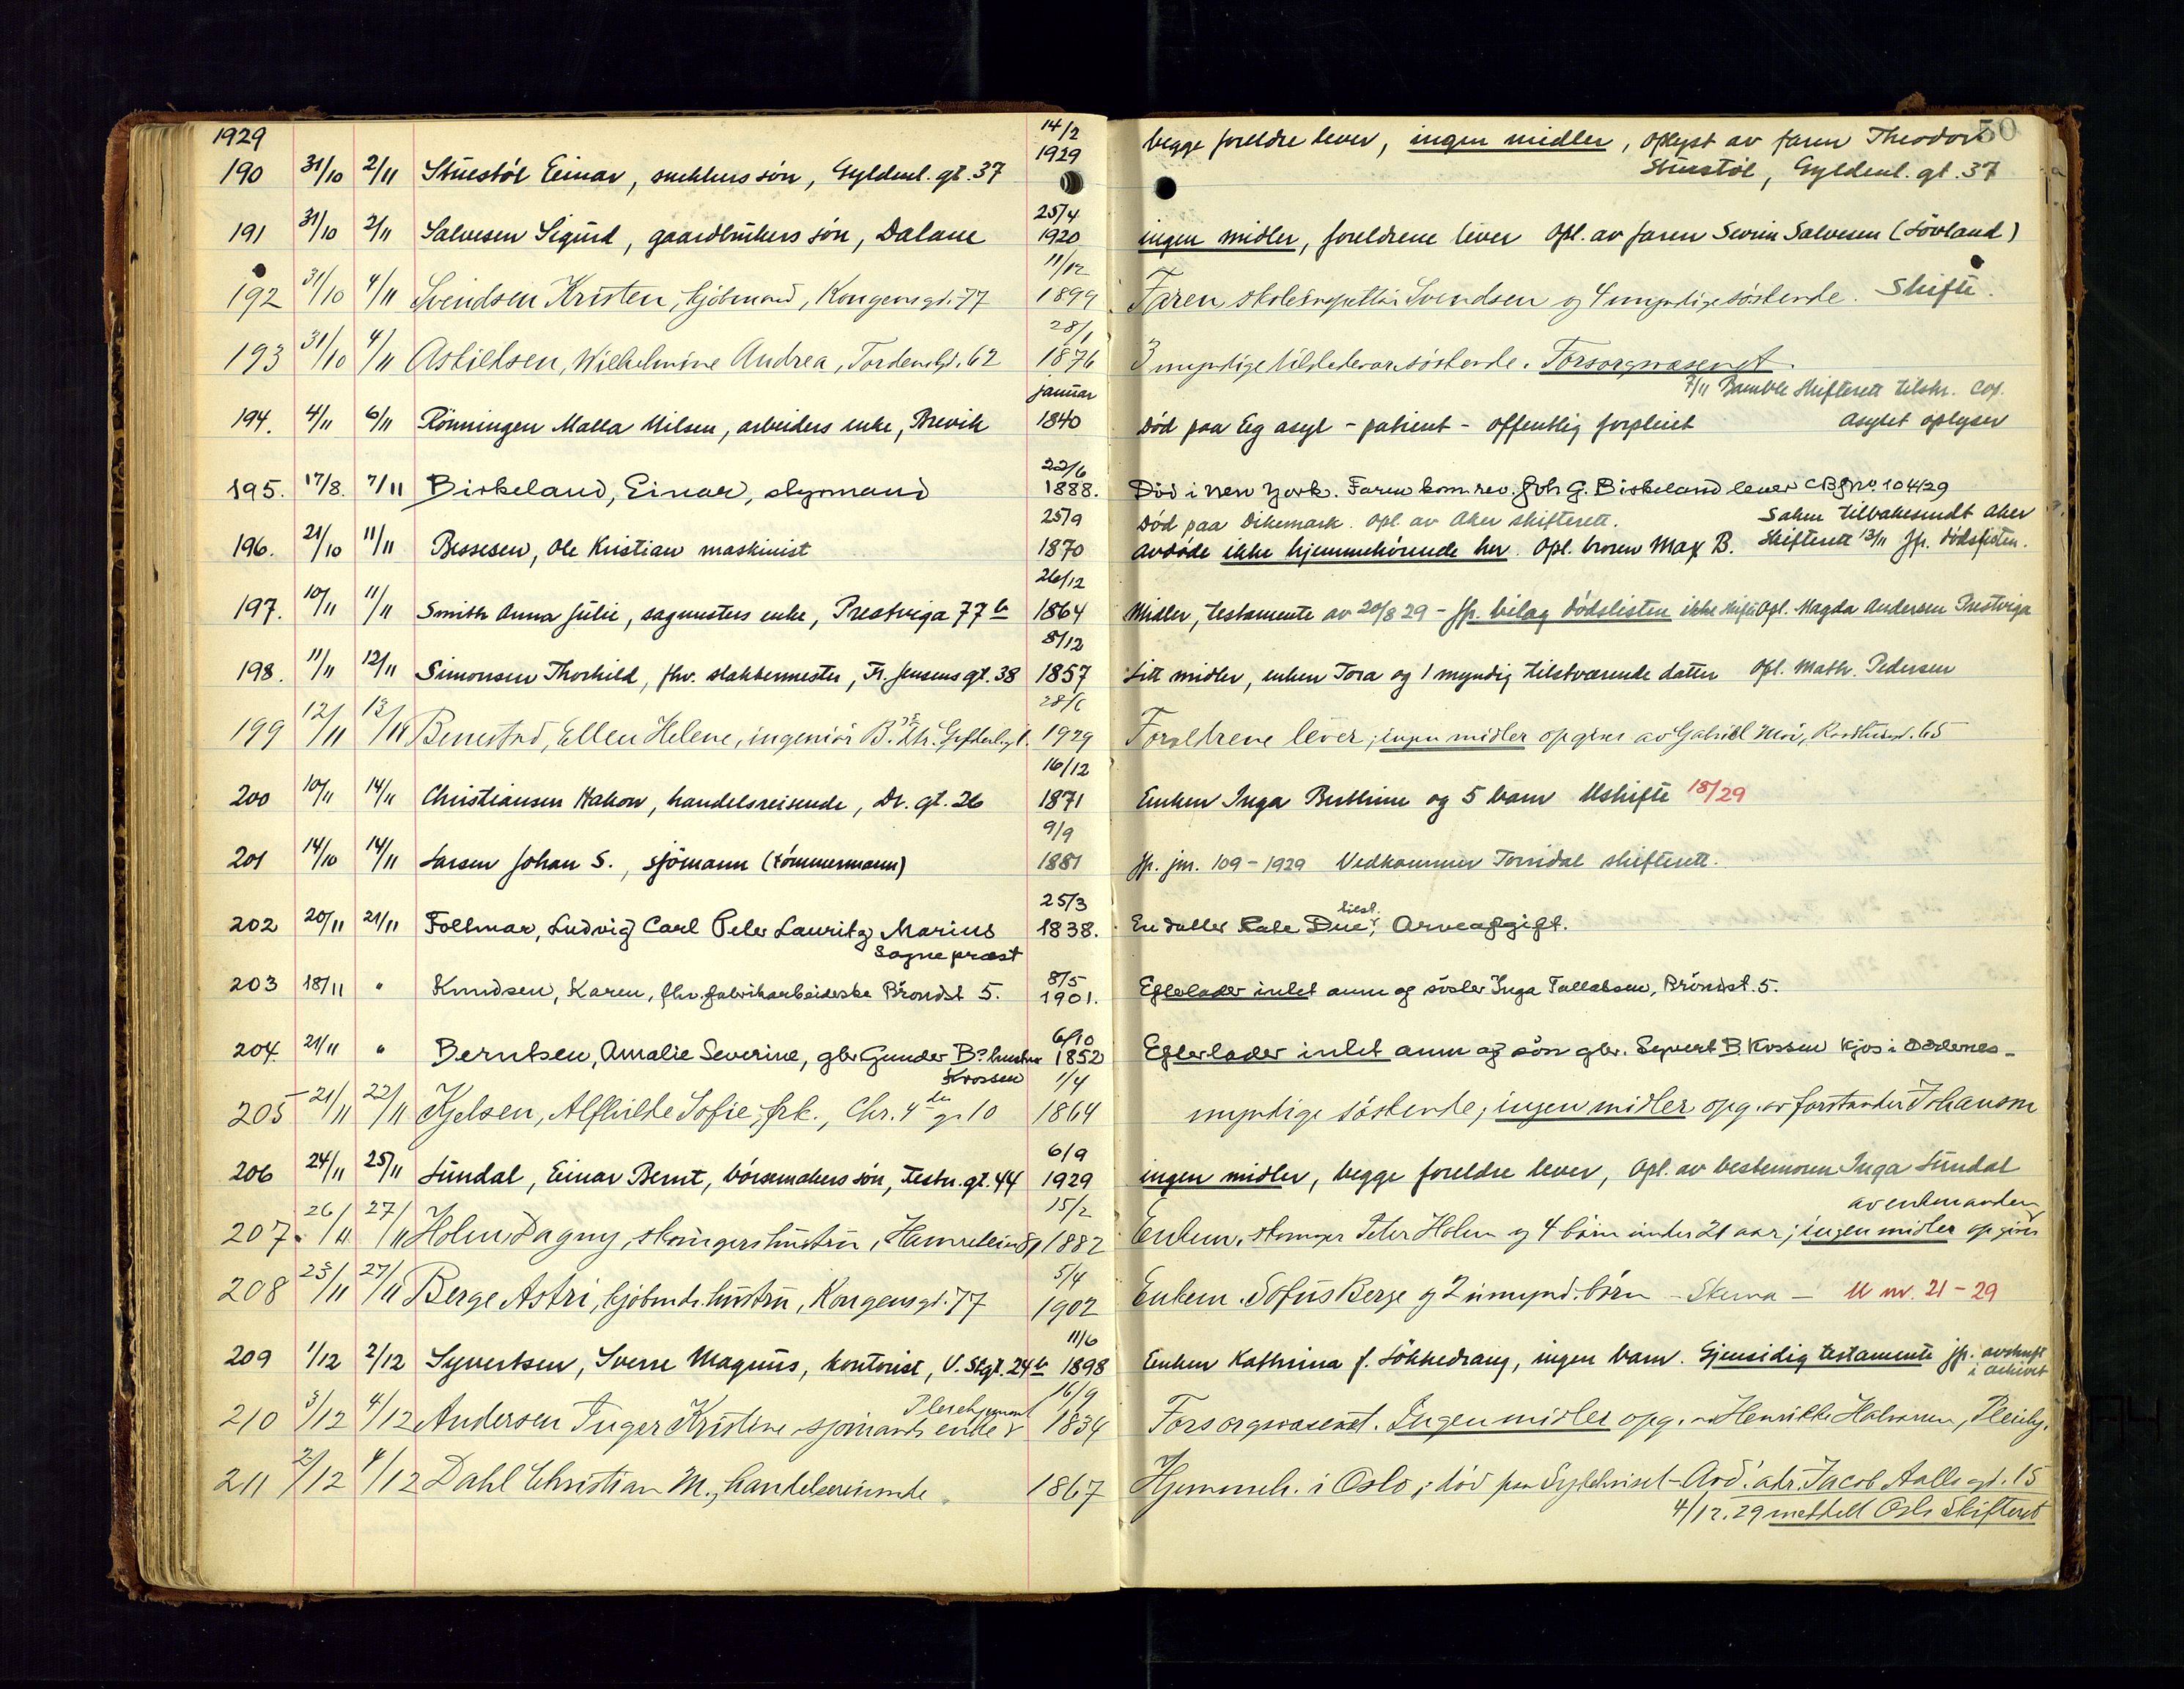 1929
50
190 31/10 2/11 Stuestøl Einar, snekkers søn, Gyldenl. gt. 37 14/2 1929 begge foreldre lever, ingen midler, oplyst av faren Theodor
Stuestøl, Gyldenl. gt. 37
191 31/10 2/11 Salvesen Sigurd, gaardbrukers søn, Dalane 25/4 1920 ingen midler, foreldrene lever Opl. av faren Severin Salvesen (Løvland)
192 31/10 4/11 Svendsen Kristen, kjøbmand, Kongensgt. 77 11/12 1899 Faren skoleinspektør Svendsen og 4 myndige søskende. Skifte.
193 31/10 4/11 Askildsen, Wilhelmine Andrea, Tordenskj. 62 28/1 1876 3 myndige tilstedevær. søskende. Forsorgsvæsenet.
7/11 Bamble Skifterett tilskr. Cop.
194. 4/11 6/11 Rönningen Malla Nilsen, arbeiders enke, Brevik januar 1840 Död paa Eg asyl - patient - offentlig forpleiet asylet oplyser
195. 17/8. 7/11 Birkeland, Einar, styrmand 22/6 1888. Död i New York. Faren kom.rev. Joh G. Birkeland lever C B J No 1044/29
196. 21/10 11/11 Bessesen, Ole Kristian maskinist 25/9 1870 Død paa Dikemark. Opl. av Aker skifterett. Saken tilbakesendt Aker
avdøde ikke hjemmehørende her. Opl. broren Max B. Skifterett 13/11 jfr. dødslisten.
197. 10/11 11/11 Smith Anna Julie, sagmesters enke, Prestviga 77 b 26/12 1864 Midler, testamente av 20/8 29 - jfr. bilag dødslisten ikke skifte Opl. Magda Andersen Prestviga
198. 11/11 12/11 Simonsen Thorkild, fhv. slaktermester, Fr. Jensens gt. 38 8/12 1857 Litt midler, enken Tora og 1 myndig tilstværende datter Opl. Math. Pedersen
199 12/11 13/11 Benestad, Ellen Helene, ingeniør B.'s dtr. 28/6 1929 Foreldrene lever; ingen midler opgives av Gabriel Moi, 65
200 10/11 14/11 Christiansen Hakon, handelsreisende, Dr. gt. 26 16/12 1871 Enken Inga Berthine og 5 barn Uskifte 18/29
201 14/10 14/11 Larsen Johan S., sjömann (tömmermann) 9/9 1881 jfr. jnr. 109-1929 Vedkommer Torridal skifterett.
202 20/11 21/11 Follmar, Ludvig Carl Peter Lauritz Marius 25/3 1838. En datter Kate Due, tilst. Arveafgift.
Sogneprest
203 18/11 " Knudsen, Karen, fhv. fabrikarbeiderske Bröndst 5. 8/5 1901. Efterlader intet anm og søster Inga Tallaksen, Bröndst. 5.
204. 21/11 " Berntsen, Amalie Severine, gbr Gunder B.s hustru 6/10 1852 Efterlader intet anm og søn gbr. Syvert B. Krossen Kjos i Oddernes -
Krossen
205 21/11 22/11 Kjelsen, Alfhilde Sofie, frk., Chr. 4 de g. 10 1/4 1864 myndige søskende, ingen midler opg. av forstander Johansen
206 24/11 25/11 Lundal, Einar Bernt, börsemakers søn, Festn. gt. 44 6/9 1929 ingen midler, begge foreldre lever, Opl. av bestemoren Inga Lundal
207. 26/11 27/11 Holm Dagny, skomagers hustru, 15/2 1882 Enkem. skomager Peter Holm og 4 børn under 21 aar; ingen midler opgives av enkemanden
208 23/11 27/11 Berge Astri, kjøbmds. hustru, Kongensgt. 77 5/4 1902 Enkem. Sofus Berge og 2 umynd. børn - Skema - U nr. 21-29
209 1/12 2/12 Syvertsen, Sverre Magnus, kontorist, V. Stgt. 24 b 11/6 1898 Enken Kathrina f. Løkkedrang, ingen barn. Gjensidig testamente jfr. avskrift
i arkivet
210 3/12 4/12 Andersen Inger Kristine sjømands enke Pleiehjemmet 16/9 1834 Forsorgsvæsenet. Ingen midler opg. av Henrikke Halvorsen, Pleiehj.
211 2/12 4/12 Dahl Christian M., handelsreisende 1867 Hjemmeh. i Oslo; død paa Sykehuset - Avd. adr. Jacob Aalls gt. 15
4/12. 29 meddelt Oslo Skifteret